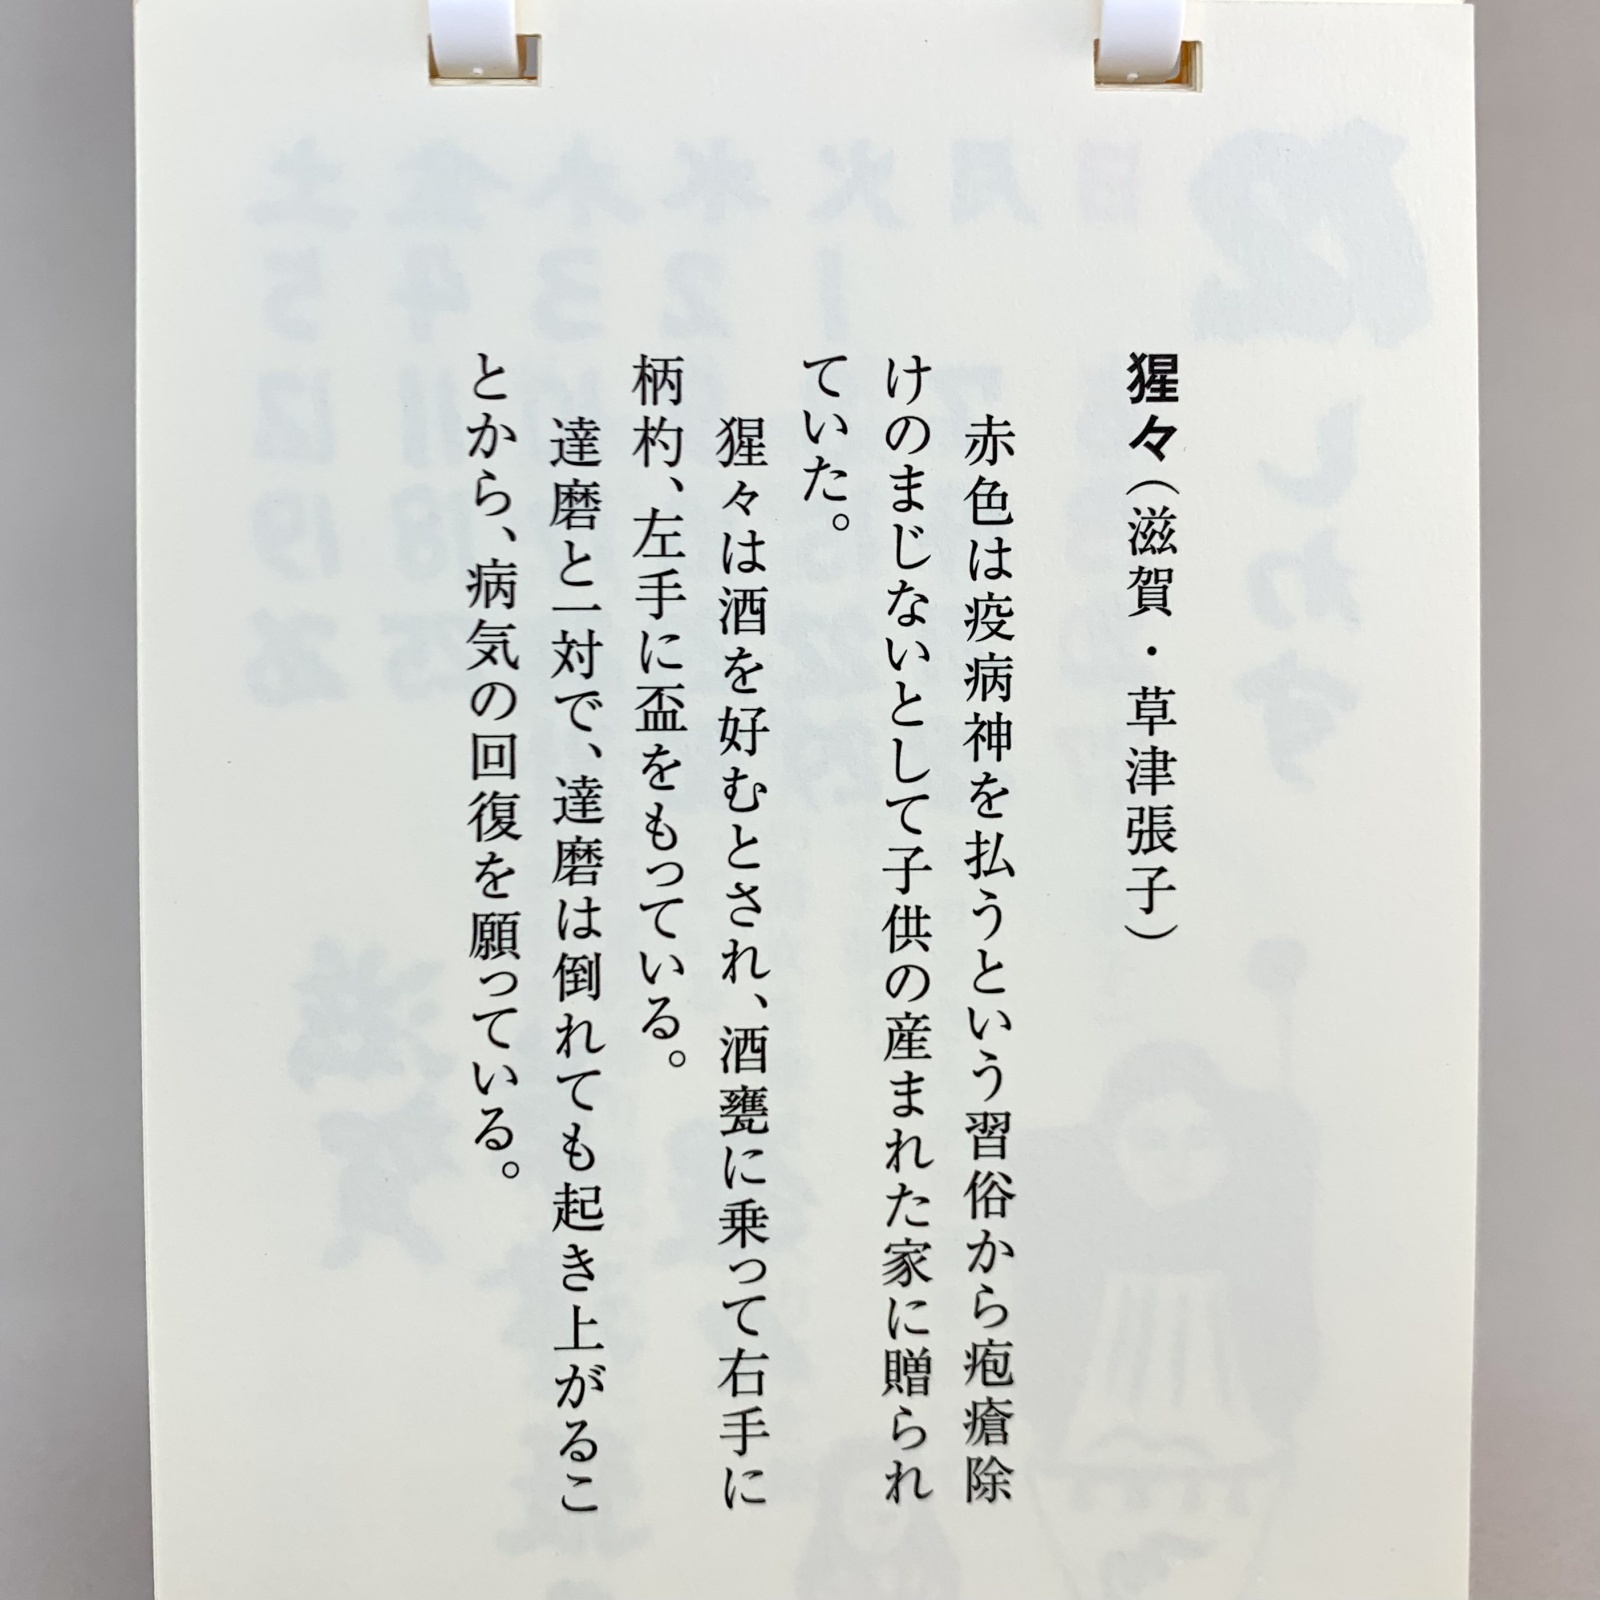 猩々（滋賀・草津張子）
赤色は疫病神を払うという習俗から疱瘡除
けのまじないとして子供の産まれた家に贈られ
ていた。
猩々は酒を好むとされ、酒甕に乗って右手に
柄杓、左手に盃をもっている。
達磨と一対で、達磨は倒れても起き上がるこ
とから、病気の回復を願っている。